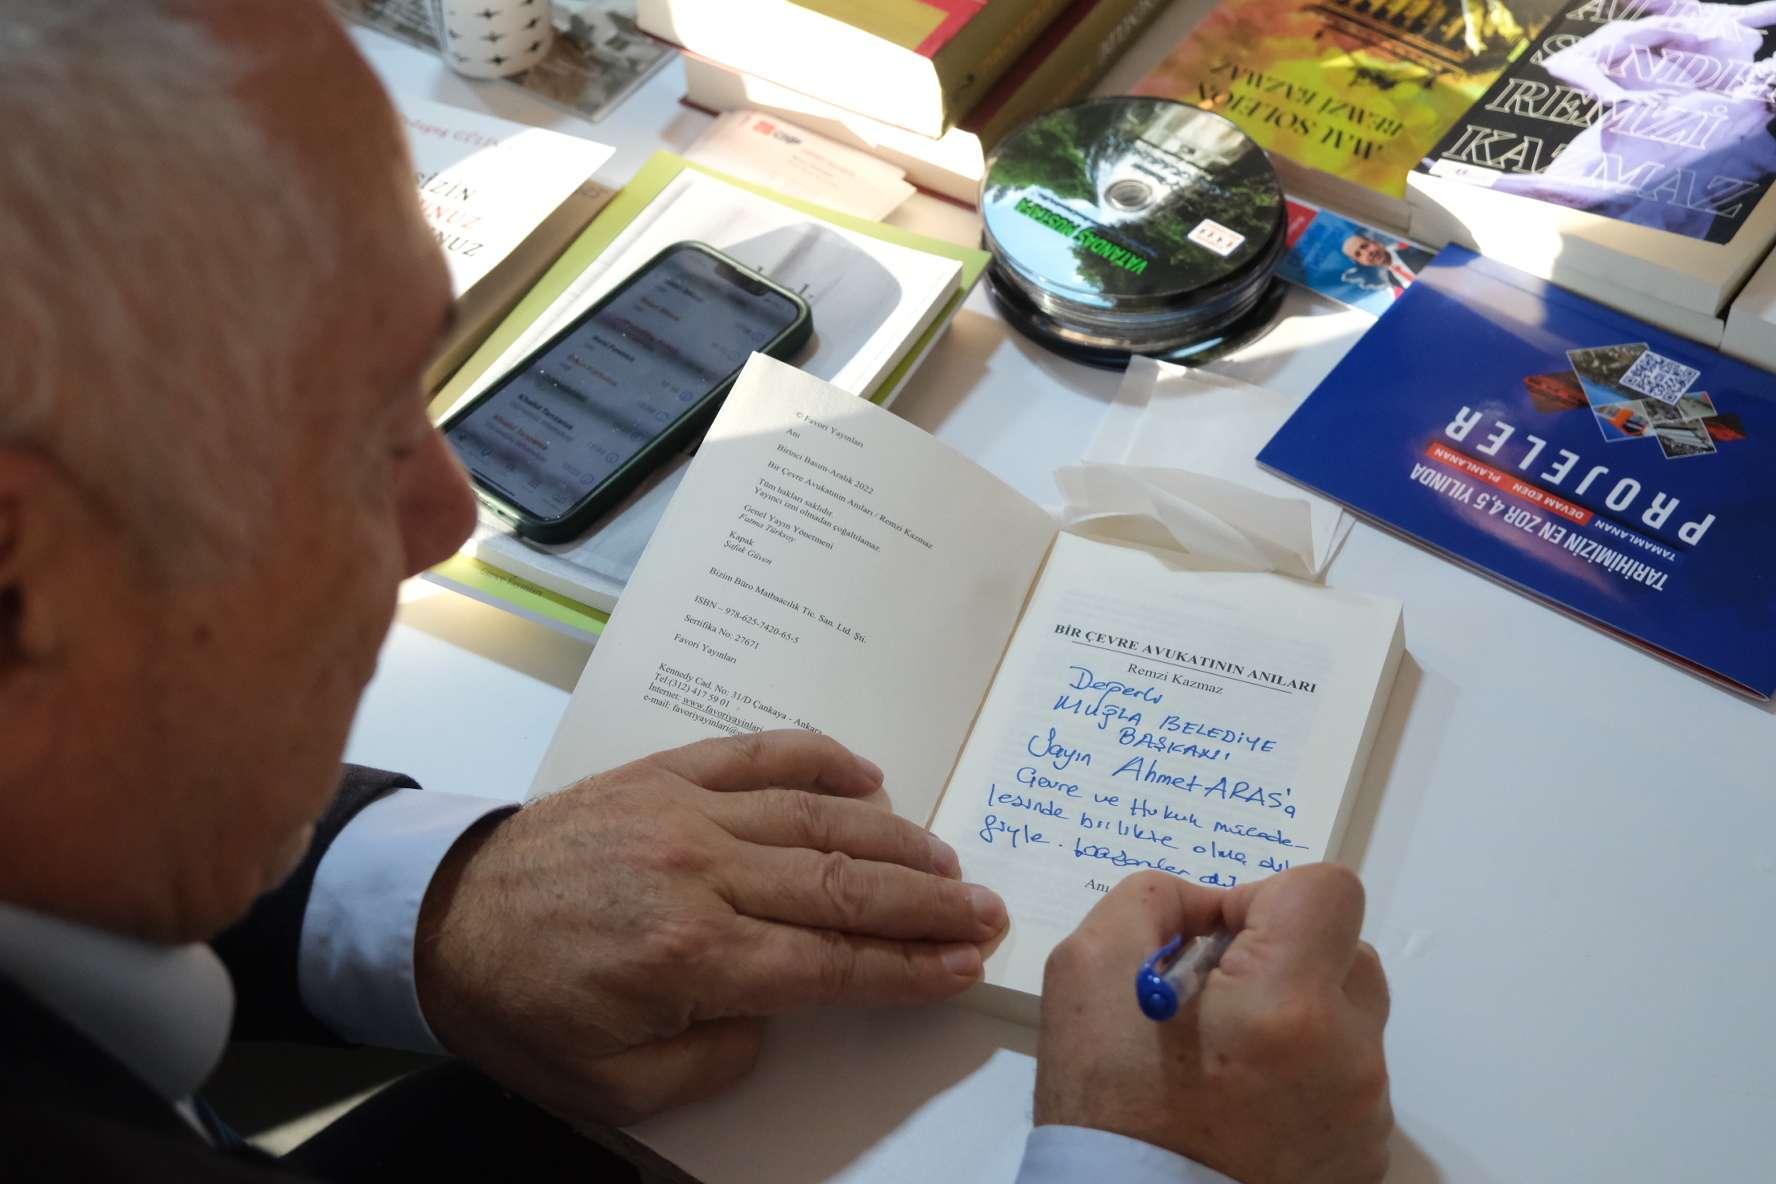 © Favori Yayınları
Anı
Birinci Basım-Aralık 2022
Bir Çevre Avukatının Anıları / Remzi Kazmaz
Tüm hakları saklıdır.
Yayıncı izni olmadan çoğaltılamaz.
Genel Yayın Yönetmeni
Fatma Türksoy
Kapak
Şafak Güven
Bizim Büro Matbaacılık Tic. San. Ltd. Şti.
ISBN – 978-625-7420-65-5
Sertifika No: 27671
Favori Yayınları
Kennedy Cad. No: 31/D Çankaya - Ankara
Tel:(312) 417 59 01
Internet: www.favoriyayinlari
e-mail: favoriyayinlari@
BİR ÇEVRE AVUKATININ ANILARI
Remzi Kazmaz
Değerli
MUĞLA BELEDİYE
BAŞKANI
Sayın Ahmet ARAS'a
Çevre ve Hukuk mücade-
lesinde birlikte olma
Anı
VATANDAŞ MUSTAFA
MAL SOLEYON
REMZİ KAZMAZ
ALEK
SANDE
REMZİ
KAZMAZ
TARİHİMİZİN EN ZOR 4,5 YILINDA
TAMAMLANAN DEVAM EDEN PLANLANAN
PROJELER
CHP